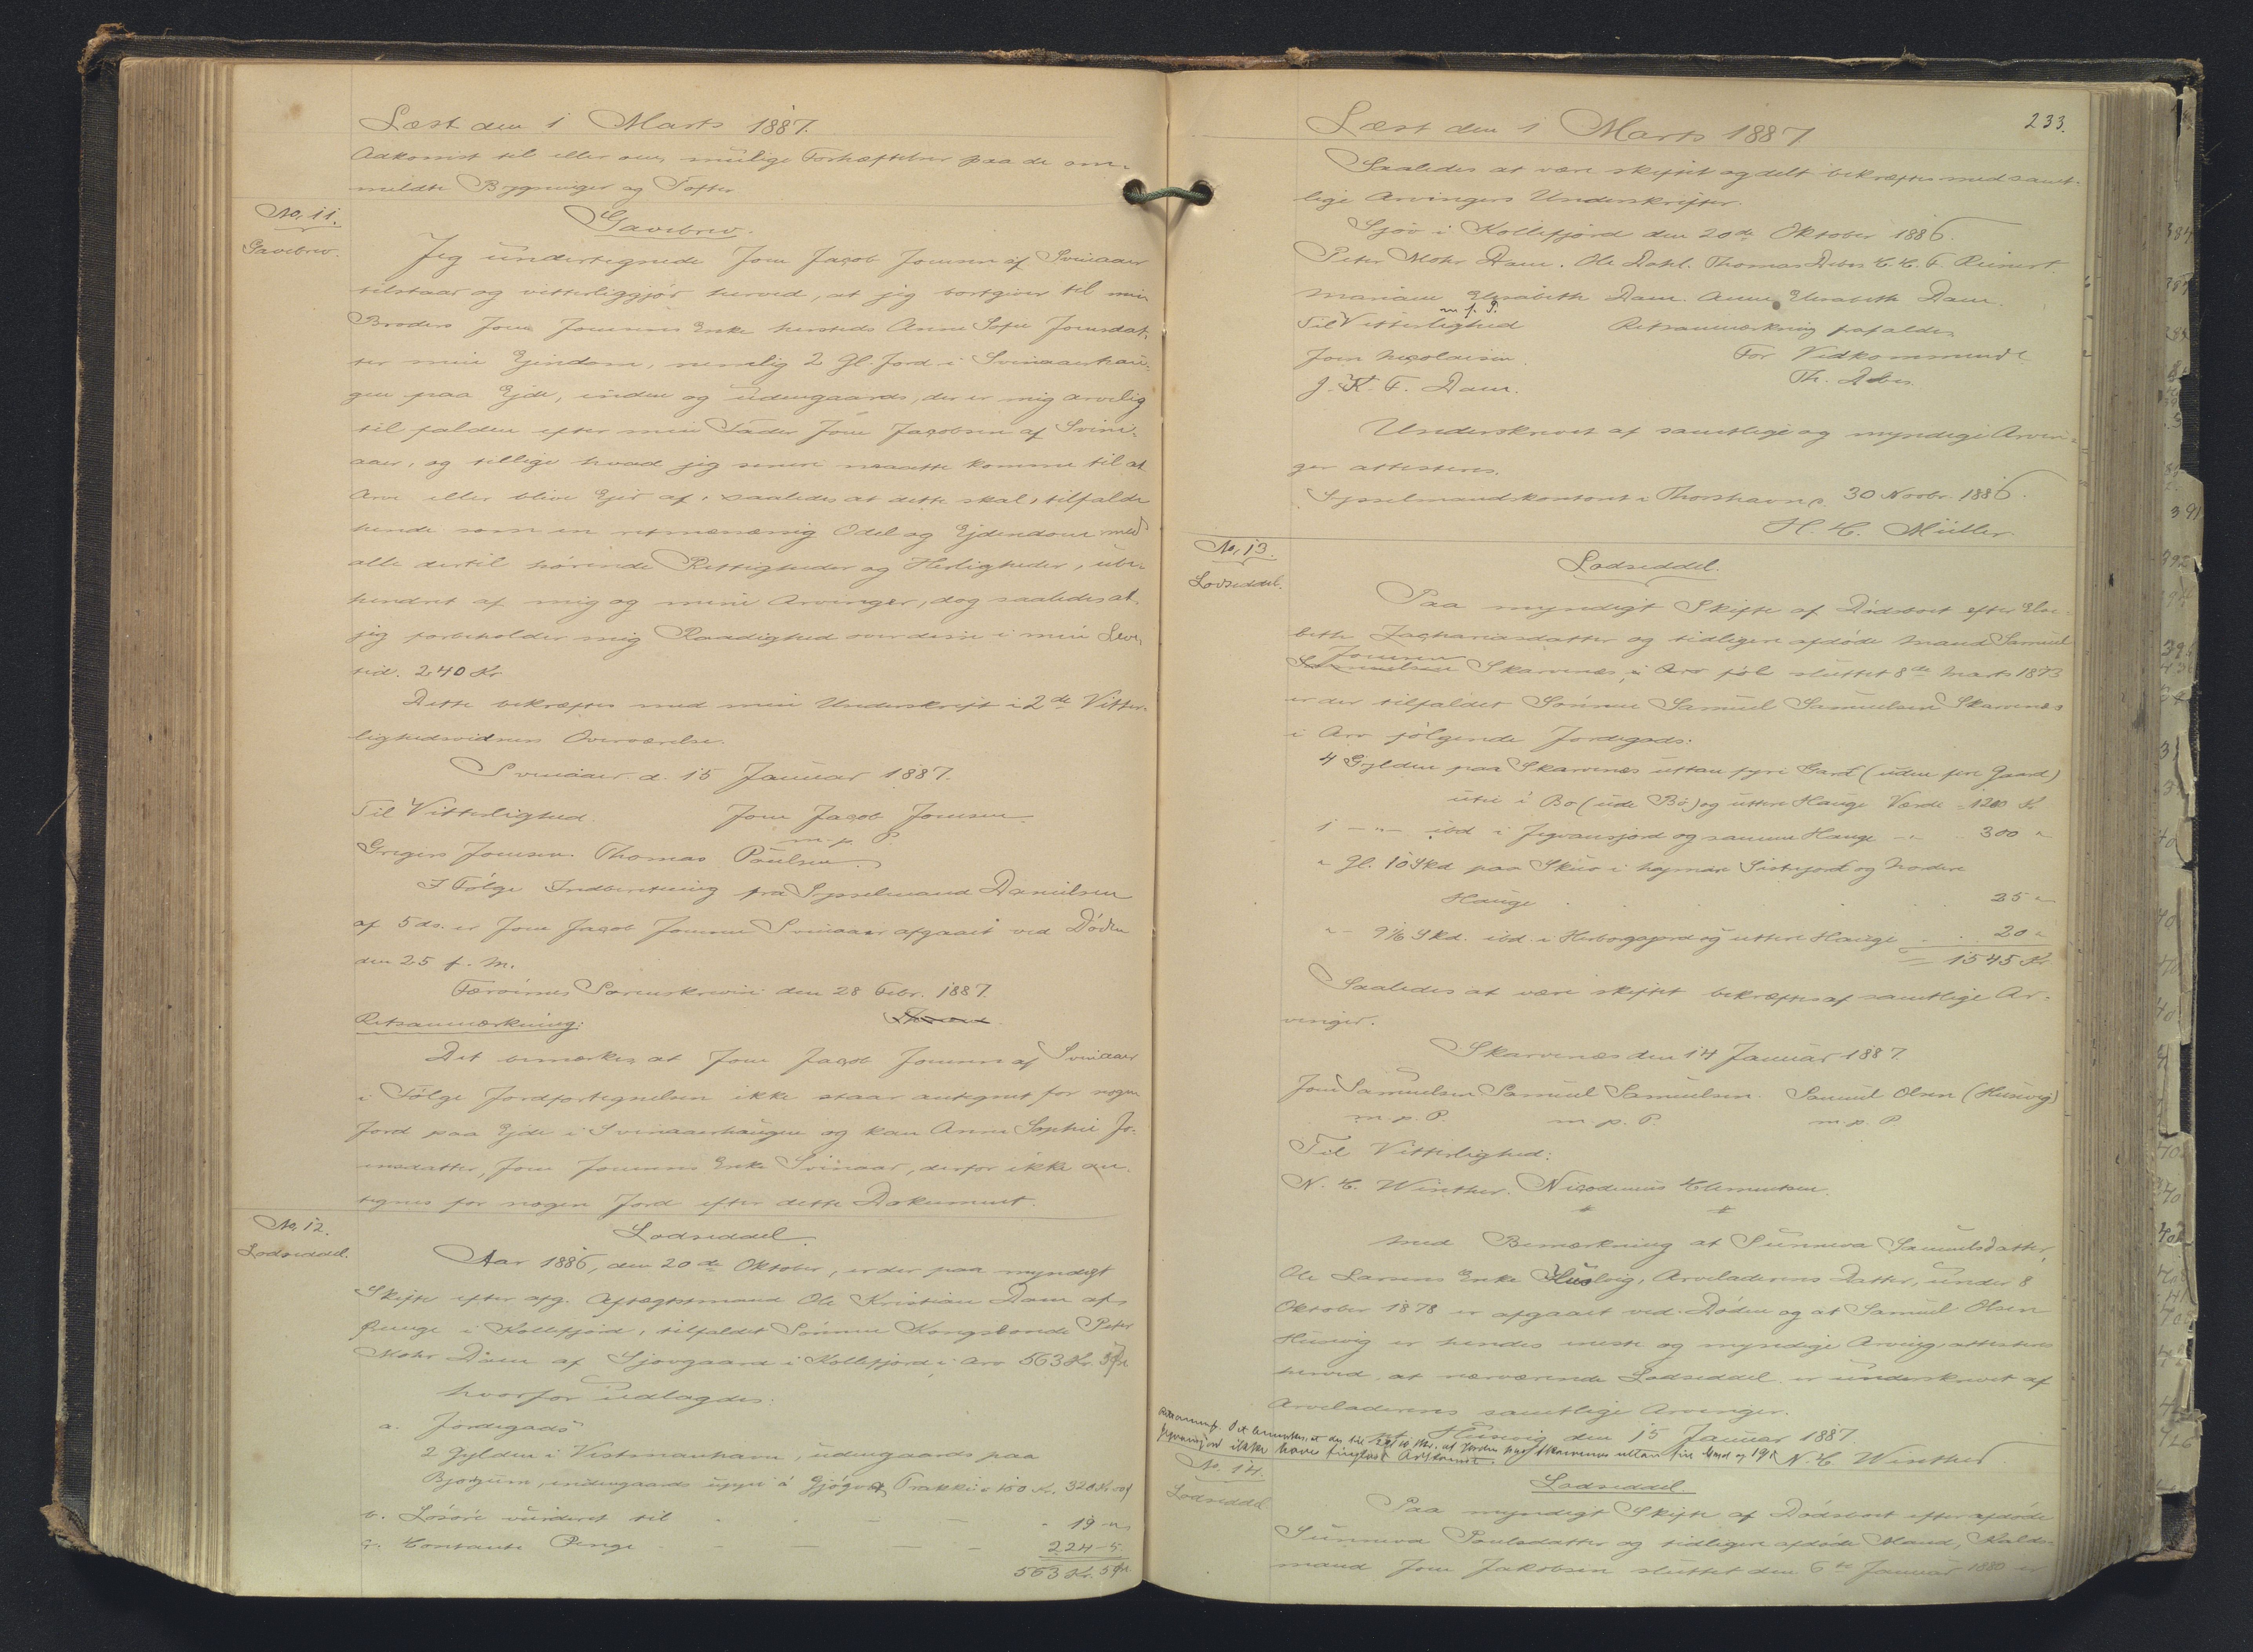 Læst den 1 Marts 1887.
Adkomst til eller om mulige Forhæftelser paa de om-
meldte Bygninger og Tofter
No. 11.
Gavebrev.
Gavebrev.
Jeg undertegnede Joen Jacob Joensen af Svinaaer
tilstaar og vitterliggjør herved, at jeg bortgiver til min
Broders Joen Joensens Enke hersteds Anne Sofie Joensdat-
ter min Ejendom, nemlig 2 Gl. Jord i Svinaaerhau-
gen paa Ejde, inden og udengaards, der er mig arvelig
til falden efter min Fader Joen Jacobsen af Svin-
aaer, og tillige hvad jeg senere maatte komme til at
Arve eller blive Ejer af, saaledes at dette skal tilfalde
hende som en retmæssig Odel og Ejdendom med
alle dertil hørende Rettigheder og Herligheder, ube-
hendret af mig og mine Arvinger, dog saaledes at
jeg forbeholder mig Raadighed over disse i min Leve-
tid. 240 Kr
Dette bekræftes med min Underskrift i 2de Vitter-
lighedsvidners Overværelse.
Svinaaer d. 15 Januar 1887.
Til Vitterlighed. Joen Jacob Joensen
m. p. P.
Gregers Joensen. Thomas Poulsen.
I Følge Indberetning fra Sysselmand Danielsen
af 5 ds. er Joen Jacob Joensen Svinaaer afgaaet ved Døden
den 25 f. M.
Færøernes Sorenskriveri den 28 Febr. 1887.
Retsanmærkning:
Det bemærkes at Joen Jacob Joensen af Svinaaer
i Følge Jordfortegnelsen ikke staar antegnet for nogen
Jord paa Ejde i Svinaaerhaugen og kan Anne Sophie Jo-
ensdatter, Joen Joensens Enke Svinaaer, derfor ikke an-
tegnes for nogen Jord efter dette Dokument.
No. 12.
Lodseddel.
Lodseddel
Aar 1886, den 20de Oktober, er der paa myndigt
Skifte efter afg. Aftægtsmand Ole Kristian Dam af
i Kollefjord, tilfaldet Sønnen Kongsbonde Peter
Mohr Dam af Sjovgaard i Kollefjord i Arv 563 Kr. 5 Ør
hvorfor udlagdes:
a. Jordegods
2 Gylden i Vestmanhavn, udengaards paa
indengaards uppi á Gjógv à 160 Kr. 320 Kr
b. Løsøre vurderet til - - - - 19 -
c. Contante Penge - - - - 224 - 5
563 Kr. 5 Ør
233.
Læst den 1 Marts 1887
Saaledes at være skiftet og delt bekræftes med samt-
lige Arvingers Underskrifter.
Sjov i Kollefjord den 20de Oktober 1886.
Peter Mohr Dam. Ole Dahl. Thomas Debes C. C. F. Reinert.
Mariane Elisabeth Dam. Anne Elisabeth Dam.
m. p. P.
Til Vitterlighed Retsanmærkning frafaldes
Joen Nicolaisen. For Vedkommende
J. K. F. Dam. Th. Debes.
Underskrevet af samtlige og myndige Arvin-
ger attesteres.
Sysselmandskontoret i Thorshavn d. 30 Novbr. 1886.
H. C. Müller.
No. 13.
Lodseddel.
Lodseddel.
Paa myndigt Skifte af Dødsboet efter Elsa-
beth Zachariasdatter og tidligere afdøde Mand Samuel
Joensen
Samuelsen Skarvenæs, i Arv føl sluttet 8de Marts 1873
er der tilfaldet Sønnen Samuel Samuelsen Skarvenæs
i Arv følgende Jordegods:
4 Gylden paa Skarvenæs uttan fyri Gard (uden for Gaard)
utie i Bø (ude Bø) og uttere Hauge Værdi = 1200 Kr.
1 - " - ibd i og samme Hauge - " 300 "
" Gl. 10 Skd paa Skuo i og Nordere
Hauge . . . 25 "
" - 9 1/6 Skd. ibd. i og uttere Hauge . . 20 "
= 1545 Kr
Saaledes at være skiftet bekræftes af samtlige Ar-
vinger.
Skarvenæs den 14 Januar 1887.
Joen Samuelsen Samuel Samuelsen. Samuel Olsen (Husevig)
m. p. P. m. p. P. m. p. P.
Til Vitterlighed:
N. C. Winther. Nicodemus Clementsen.
Med Bemærkning at Sunneva Samuelsdatter,
Ole Larsens Enke Husevig, Arveladerens Datter, under 8
Oktober 1878 er afgaaet ved Døden og at Samuel Olsen
Husevig er hendes eneste og myndige Arving, attesteres
herved, at nærværende Lodseddel er underskrevet af
Arveladerens samtlige Arvinger.
Husevig den 15 Januar 1887
N. C. Winther
Det bemærkes, at der til
ikke haves tinglæst Adkomst.
No. 14.
Lodseddel
Lodseddel
Paa myndigt Skifte af Dødsboet efter afdøde
Sunneva Poulsdatter og tidligere afdøde Mand,
mand Joen Jakobsen sluttet den 6te Januar 1880 er